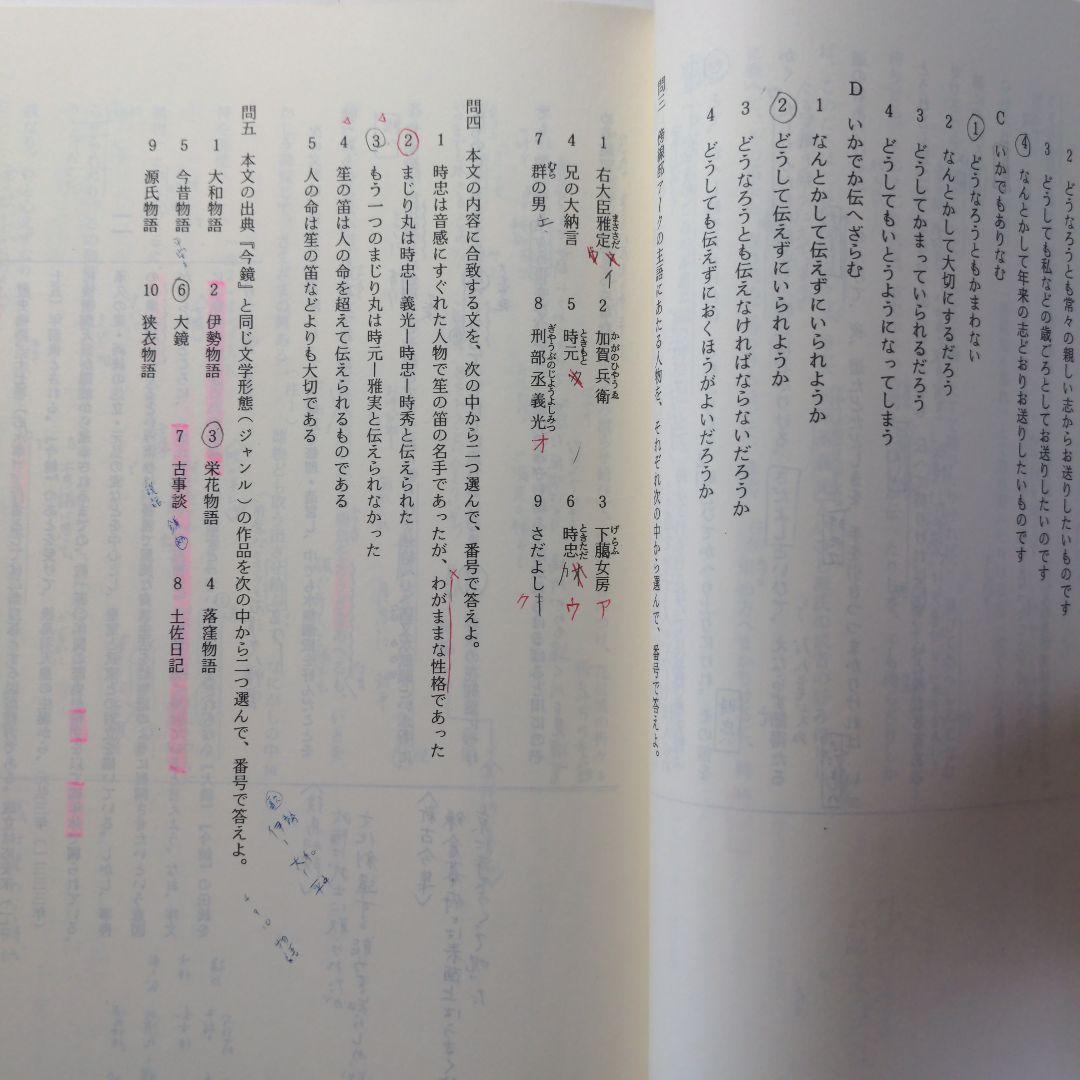 2 どうなろうとも常々の親しい志からお送りしたいものです
3 どうしても私などの歳ごろとしてお送りしたいのです
4 なんとかして年来の志どおりお送りしたいものです
C いかでもありなむ
1 どうなろうともかまわない
2 なんとかして大切にするだろう
3 どうしてかまっていられるだろう
4 どうしてもいとうようになってしまう
D いかでか伝へざらむ
1 なんとかして伝えずにいられようか
2 どうして伝えずにいられようか
3 どうなろうとも伝えなければならないだろうか
4 どうしても伝えずにおくほうがよいだろうか
問三 傍線部ア〜クの主語にあたる人物を、それぞれ次の中から選んで、番号で答えよ。
1 右大臣雅定 まささだ イ 2 加賀兵衛 かがのひやうゑ 3 下臈女房 げらふ ア
4 兄の大納言 5 時元 ときもと 6 時忠 ときただ ウ
7 群の男 むら エ 8 刑部丞義光 ぎやうぶのじようよしみつ オ 9 さだよし ク
問四 本文の内容に合致する文を、次の中から二つ選んで、番号で答えよ。
1 時忠は音感にすぐれた人物で笙の笛の名手であったが、わがままな性格であった
2 まじり丸は時忠―義光―時忠―時秀と伝えられた
3 もう一つのまじり丸は時元―雅実と伝えられなかった
4 笙の笛は人の命を超えて伝えられるものである
5 人の命は笙の笛などよりも大切である
問五 本文の出典、『今鏡』と同じ文学形態(ジャンル)の作品を次の中から二つ選んで、番号で答えよ。
1 大和物語 2 伊勢物語 3 栄花物語 4 落窪物語
5 今昔物語 6 大鏡 7 古事談 8 土佐日記
9 源氏物語 10 狭衣物語
説話
歌物
伊勢
大和
平中
物語